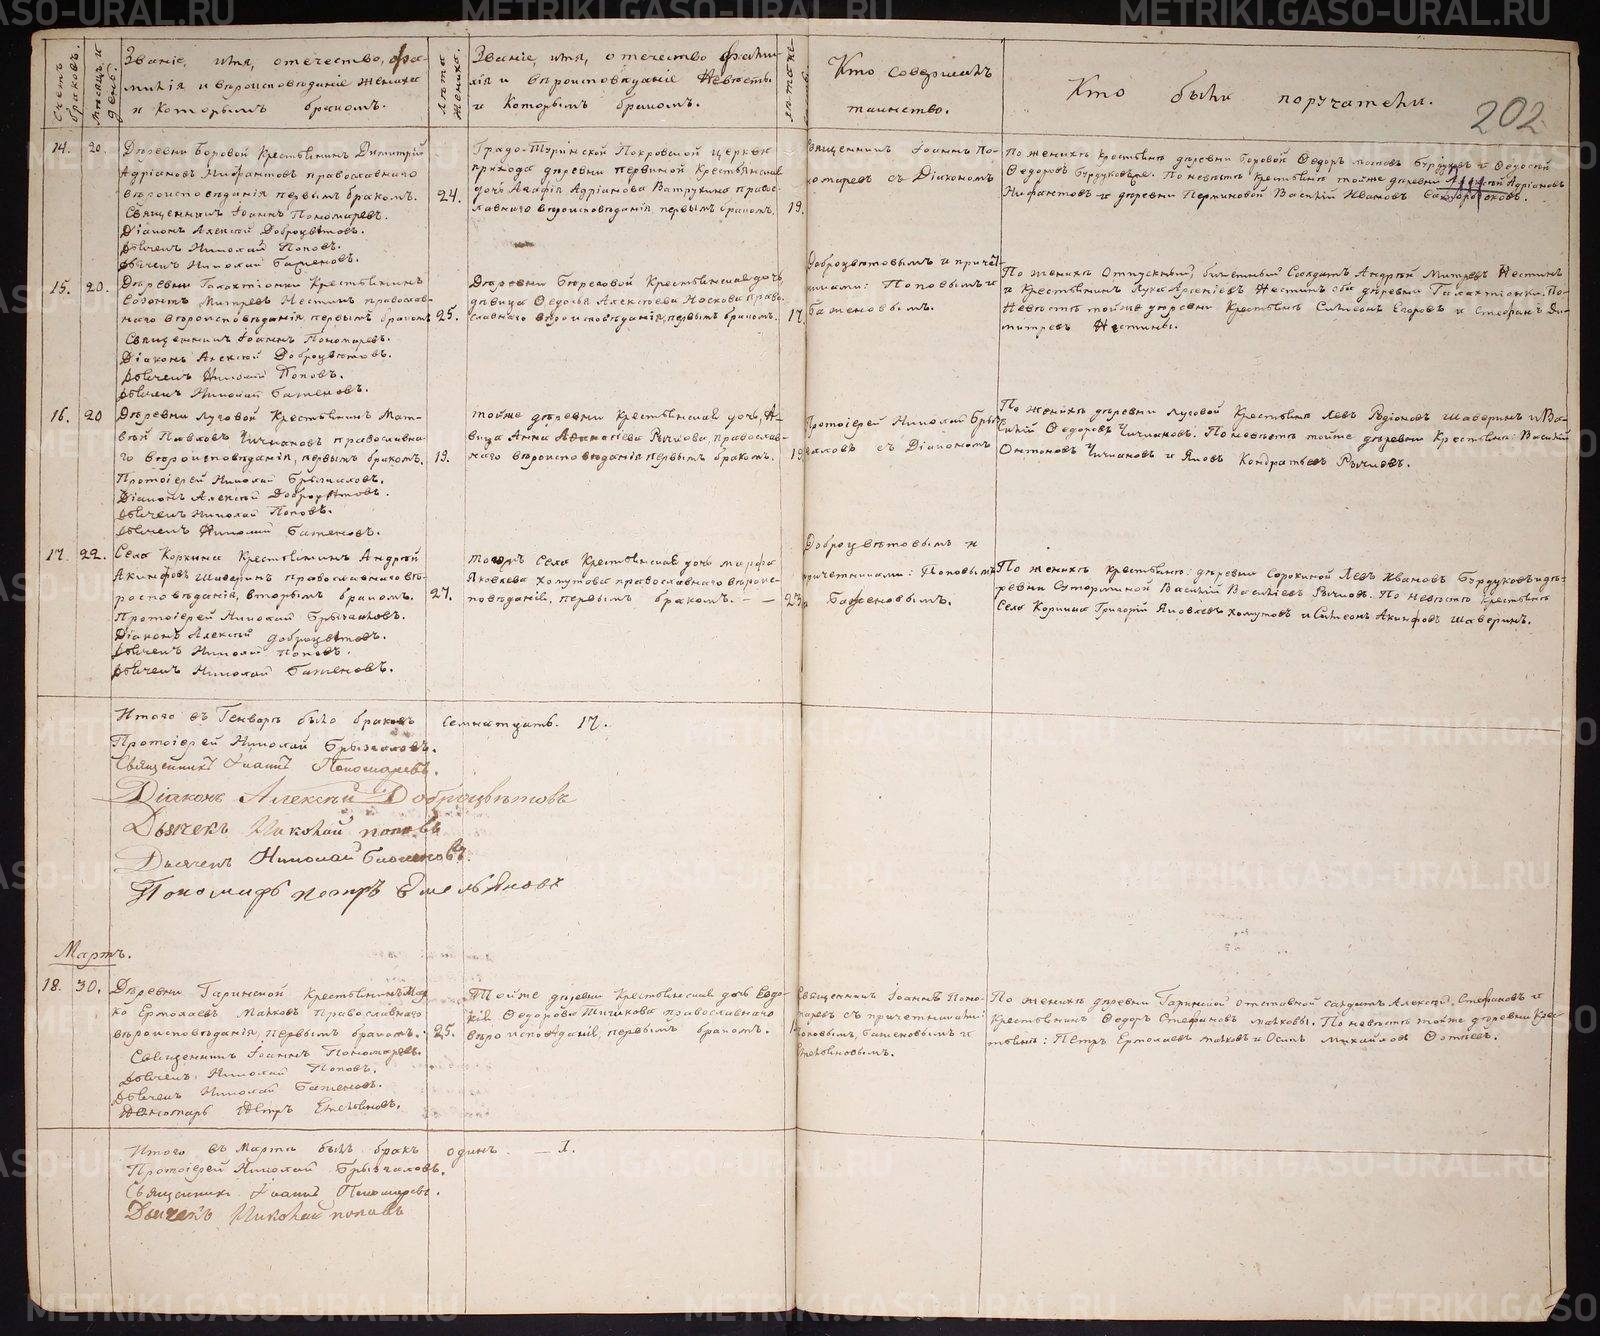 202
Счетъ браковъ.
Мѣсяцъ и день.
Званіе, имя, отечество, фа-
милія и вѣроисповѣданіе жениха
и которымъ бракомъ.
Лѣта жениха.
Званіе, имя, отечество фами-
лія и вѣроисповѣданіе невѣсты
и которымъ бракомъ.
Кто совершалъ
таинство.
Кто были поручатели.
14. 20.
Деревни Боровой Крестьянинъ Димитрій
Адріановъ Нифантовъ православнаго
вѣроисповѣданія первымъ бракомъ.
Священникъ Іоаннъ Пономаревъ.
Діаконъ Алексѣй Доброцвѣтовъ.
Дьячекъ Николай Поповъ.
Дьячекъ Николай Баженовъ.
24.
Градо-Туринской Покровской церкви
прихода деревни Первиной Крестьянская
дочь Агафія Адріанова Ватрухина право-
славнаго вѣроисповѣданія первымъ бракомъ.
19.
Священникъ Іоаннъ По-
номаревъ съ Діакономъ
По женихѣ крестьяне деревни Боровой Ѳедоръ
Ѳедоровъ По невѣстѣ крестьяне тойже деревни Адріановъ
Нифантовъ и деревни Перминовой Василій Ивановъ
15. 20.
Деревни Галактіонки Крестьянинъ
Созонтъ Митревъ Нестинъ православ-
наго вѣроисповѣданія первымъ бракомъ
Священникъ Іоаннъ Пономаревъ.
Діаконъ Алексѣй Доброцвѣтовъ.
Дьячекъ Николай Поповъ.
Дьячекъ Николай Баженовъ.
25.
Деревни Бѣреговой Крестьянская дочь
дѣвица Ѳедосья Алексѣева Носкова право-
славнаго вѣроисповѣданія, первымъ бракомъ.
17.
Доброцвѣтовымъ и причет-
никами: Поповымъ и
Баженовымъ.
По женихѣ Отпускный, билетный Солдатъ Андрей Митревъ Нестинъ
и Крестьянинъ Лука Арсеніевъ Нестинъ оба деревни Галактіонки. По
Невѣстѣ тойже деревни Крестьяне Симеонъ Егоровъ и Стефанъ Ди-
митревъ Нестины.
16. 20
Деревни Луговой Крестьянинъ Мат-
вѣй Павловъ Чичкановъ православна-
го вѣроисповѣданія, первымъ бракомъ.
Протоіерей Николай Брызгаловъ.
Діаконъ Алексѣй Доброцвѣтовъ.
Дьячекъ Николай Поповъ.
Дьячекъ Николай Баженовъ.
19.
тойже деревни Крестьянская дочь, дѣ-
вица Анна Аѳанасіева Рычкова, православ-
наго вѣроисповѣданія первымъ бракомъ.
19
Протоіерей Николай Брыз-
галовъ съ Діакономъ
По женихѣ деревни Луговой Крестьяне Левъ Родіоновъ Шаверинъ и Ва-
силій Ѳедоровъ Чичкановъ. По невѣстѣ тойже деревни Крестьяне: Василій
Онтоновъ Чичкановъ и Яковъ Кондратьевъ Рычковъ.
17. 22.
Села Коркина Крестьянинъ Андрей
Акинфовъ Шаверинъ православнаго вѣ-
роисповѣданія, вторымъ бракомъ.
Протоіерей Николай Брызгаловъ.
Діаконъ Алексѣй Доброцвѣтовъ.
Дьячекъ Николай Поповъ.
Дьячекъ Николай Баженовъ.
27.
тогожъ Села Крестьянская дочь Марфа
Яковлева Хомутова православнаго вѣроис-
повѣданія, первымъ бракомъ. — —
23
Доброцвѣтовымъ и
причетниками: Поповымъ
и Баженовымъ.
По женихѣ крестьяне: деревни Сорокиной Левъ Ивановъ Бурдуковъ и де-
ревни Василій Васильевъ Рычковъ. По невѣстѣ крестьяне
Села Коркина Григорій Яковлевъ Хомутовъ и Симеонъ Акинфовъ Шаверинъ.
Итого въ Генварѣ было браковъ семнатцать. 17.
Протоіерей Николай Брызгаловъ.
Священникъ Іоаннъ Пономаревъ.
Діаконъ Алексѣй Доброцвѣтовъ
Дьячекъ Николай Поповъ
Дьячекъ Николай Баженовъ.
Пономарь Петръ Емельяновъ
Мартъ.
18. 30.
Деревни Гаринской Крестьянинъ Мар
ко Ермолаевъ Махковъ Православнаго
вѣроисповѣданія, первымъ бракомъ.
Священникъ Іоаннъ Пономаревъ.
Дьячекъ Николай Поповъ.
Дьячекъ Николай Баженовъ.
Пономарь Петръ Емельяновъ.
25.
Тойже деревни Крестьянская дочь Евдо-
кія Ѳедорова Шишкова православнаго
вѣроисповѣданія, первымъ бракомъ.
Священникъ Іоаннъ Поно-
маревъ съ причетниками:
Поповымъ, Баженовымъ и
Емельяновымъ.
По женихѣ деревни Гаринской отставной салдатъ Алексѣй Стефановъ и
крестьянинъ Ѳедоръ Стефановъ Махковы. По невѣстѣ тойже деревни Крес-
тьяне: Петръ Ермолаевъ Махковъ и Осипъ Михайловъ Ѳотѣевъ.
Итого въ Мартѣ былъ бракъ одинъ. — 1.
Протоіерей Николай Брызгаловъ.
Священникъ Іоаннъ Пономаревъ.
Дьячекъ Николай Поповъ
METRIKI.GASO-URAL.RU